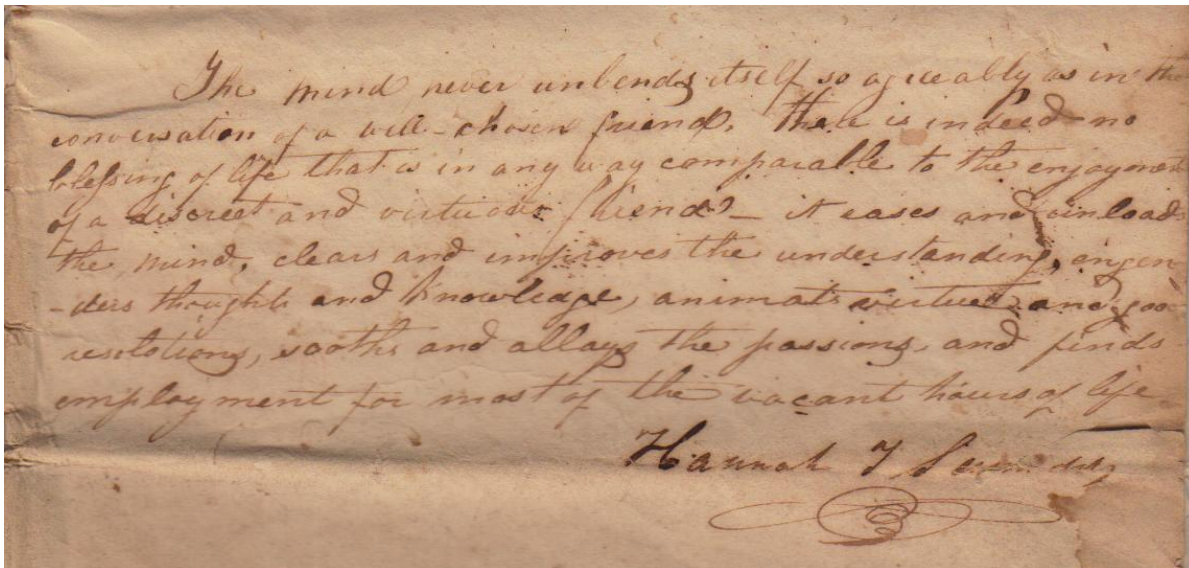 The mind never unbends itself so agreeably as in the
conversation of a well-chosen friend. There is indeed no
blessing of life that is in any way comparable to the enjoyment
of a discreet and virtuous friend - it eases and unloads
the mind, clears and improves the understanding, engen
-ders thoughts and knowledge, animats virtue and goo
resolutions, sooths and allays the passions, and finds
employment for most of the vacant hours of life
Hannah T